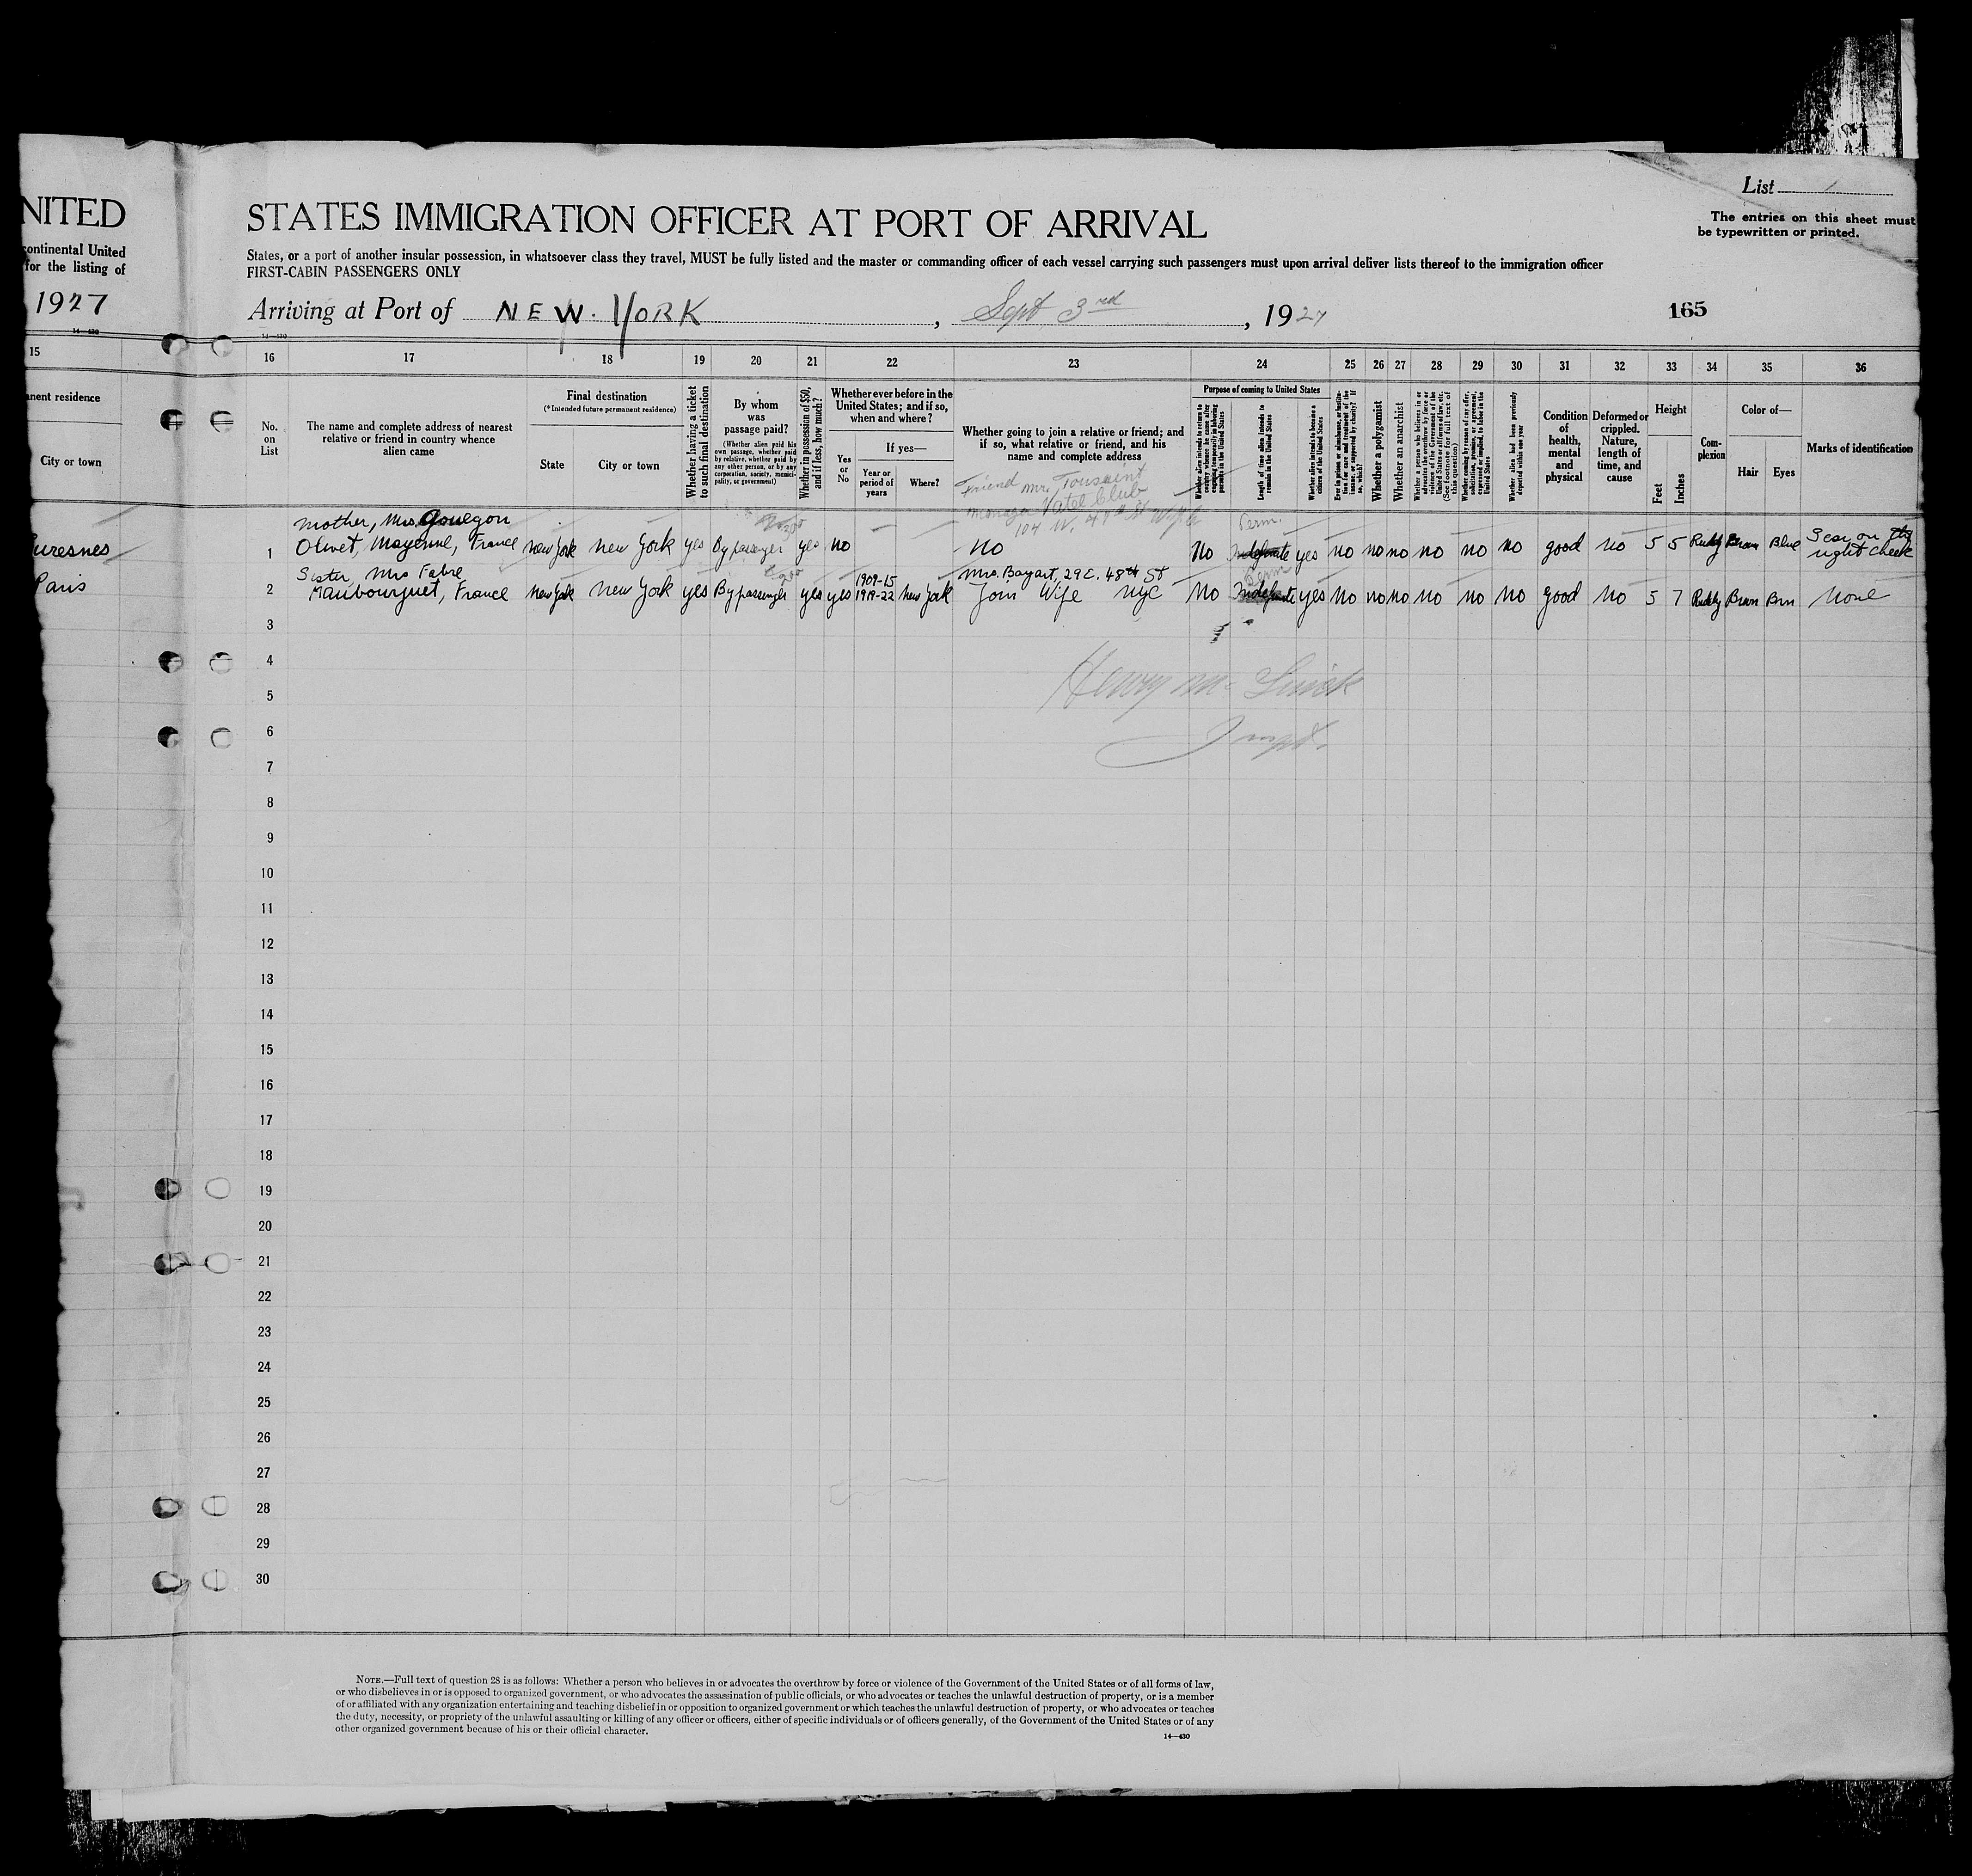 List /
NITED
STATES IMMIGRATION OFFICER AT PORT OF ARRIVAL
The entries on this sheet must
be typewritten or printed.
continental United
for the listing of
States, or a port of another insular possession, in whatsoever class they travel, MUST be fully listed and the master or commanding officer of each vessel carrying such passengers must upon arrival deliver lists thereof to the immigration officer
FIRST-CABIN PASSENGERS ONLY
1927
Arriving at Port of NEW. YORK, Sept 3rd, 1927
165
14—430
14—430
15 16 17 18 19 20 21 22 23 24 25 26 27 28 29 30 31 32 33 34 35 36
anent residence
City or town
No. on List
The name and complete address of nearest
relative or friend in country whence
alien came
Final destination
(*Intended future permanent residence)
State
City or town
Whether having a ticket
to such final destination
By whom
was
passage paid?
(Whether alien paid his
own passage, whether paid
by relative, whether paid by
any other person, or by any
corporation, society, munici-
pality, or government)
Whether in possession of $50,
and if less, how much?
Whether ever before in the
United States; and if so,
when and where?
Yes or No
If yes—
Year or
period of
years
Where?
Whether going to join a relative or friend; and
if so, what relative or friend, and his
name and complete address
Purpose of coming to United States
Whether alien intends to return to
country whence he came after
engaging temporarily in laboring
pursuits in the United States
Length of time alien intends to
remain in the United States
Whether alien intends to become a
citizen of the United States
Ever in prison or almshouse, or institu-
tion for care and treatment of the
insane, or supported by charity? If
so, which?
Whether a polygamist
Whether an anarchist
Whether a person who believes in or
advocates the overthrow by force or
violence of the Government of the
United States or all forms of law, etc.
(See footnote for full text of
this question)
Whether coming by reason of any offer,
solicitation, promise, or agreement,
expressed or implied, to labor in the
United States
Whether alien had been previously
deported within one year
Condition
of
health,
mental
and
physical
Deformed or
crippled.
Nature,
length of
time, and
cause
Height
Feet
Inches
Com-
plexion
Color of—
Hair
Eyes
Marks of identification
Friend Mr. Toussaint
Vatel Club
104 W. 48th St
Suresnes
1 Mother, Mrs Gouegon
Olivet, Mayenne, France New York New York yes By passenger yes no No No Perm. Indefinite yes no no no no no no good no 5 5 Ruddy Brown Blue Scar on the
right cheek
Paris
2 Sister, Mrs Fabre
Maubourguet, France New York New York yes By passenger yes yes 1909-15
1919-22 New York Mrs. Bayart, 29 E. 48th St
Join Wife NYC No Perm Indefinite yes no no no no no no good no 5 7 Ruddy Brown Brn None
3
4
Henry
5
6
Inspt.
7
8
9
10
11
12
13
14
15
16
17
18
19
20
21
22
23
24
25
26
27
28
29
30
NOTE.—Full text of question 28 is as follows: Whether a person who believes in or advocates the overthrow by force or violence of the Government of the United States or of all forms of law,
or who disbelieves in or is opposed to organized government, or who advocates the assassination of public officials, or who advocates or teaches the unlawful destruction of property, or is a member
of or affiliated with any organization entertaining and teaching disbelief in or opposition to organized government or which teaches the unlawful destruction of property, or who advocates or teaches
the duty, necessity, or propriety of the unlawful assaulting or killing of any officer or officers, either of specific individuals or of officers generally, of the Government of the United States or of any
other organized government because of his or their official character.
14—430